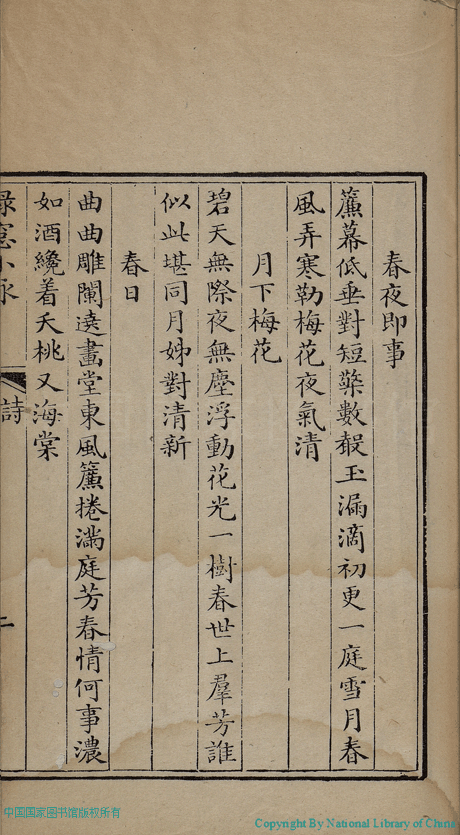 春夜即事
簾幕低垂對短檠數殽玉漏滴初更一庭雪月春
風弄寒勒梅花夜氣清
月下梅花
碧天無際夜無塵浮動花光一樹春世上羣芳誰
似此堪同月姊對清新
春日
曲曲雕闌遶畫堂東風簾捲滿庭芳春情何事濃
如酒纔着夭桃又海棠
綠窻小詠
詩
二
中国国家图书馆版权所有
Copyright By National Library of China